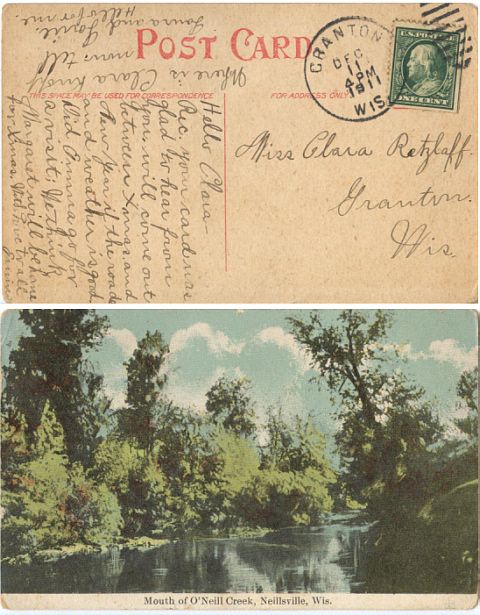 POST CARD
THIS SPACE MAY BE USED FOR CORRESPONDENCE
FOR ADDRESS ONLY
GRANTON
DEC
11
4 PM
1911
WIS.
U.S. POSTAGE
ONE CENT
Miss Clara Retzlaff.
Granton.
Wis.
Hello Clara-
Rec. your card was
glad to hear from
you will come out
between Xmas and
New Year if the roads
and weather is good
Did Emma go for
a visit; Nothing
Margaret will be home
for Xmas. With love to all
Where is Clara Knoff
now tell
Laura and
Hello for me
Mouth of O'Neill Creek, Neillsville, Wis.